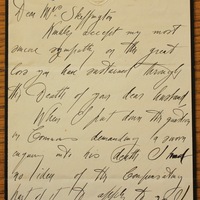 Dear Mrs Skeffington
Kindly accept my most
sincere sympathy on the great
loss you have sustained through
the Death of your dear husband,
When I put down the question
in Commons demanding a sworn
inquiry into his death I had
no idea of the Compensatory
part of it